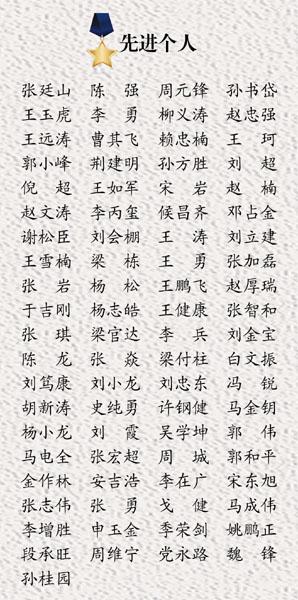 先进个人
张廷山 陈强 周元锋 孙书岱
王玉虎 李勇 柳义涛 赵忠强
王远涛 曹其飞 赖忠楠 王珂
郭小峰 荆建明 孙方胜 刘超
倪超 王如军 宋岩 赵楠
赵文涛 李丙玺 侯昌齐 邓占金
谢松臣 刘会棚 王涛 刘立建
王雪楠 梁栋 王勇 张加磊
张岩 杨松 王鹏飞 赵厚瑞
于吉刚 杨志皓 王健康 张智和
张琪 梁官达 李兵 刘金宝
陈龙 张焱 梁付柱 白文振
刘笃康 刘小龙 刘忠东 冯锐
胡新涛 史纯勇 许钢健 马金钥
杨小龙 刘霞 吴学坤 郭伟
马电全 张宏超 周城 郭和平
金作林 安吉浩 李在广 宋东旭
张志伟 张勇 戈健 马成伟
李增胜 申玉金 季荣剑 姚鹏正
段承旺 周维宁 党永路 魏锋
孙桂园